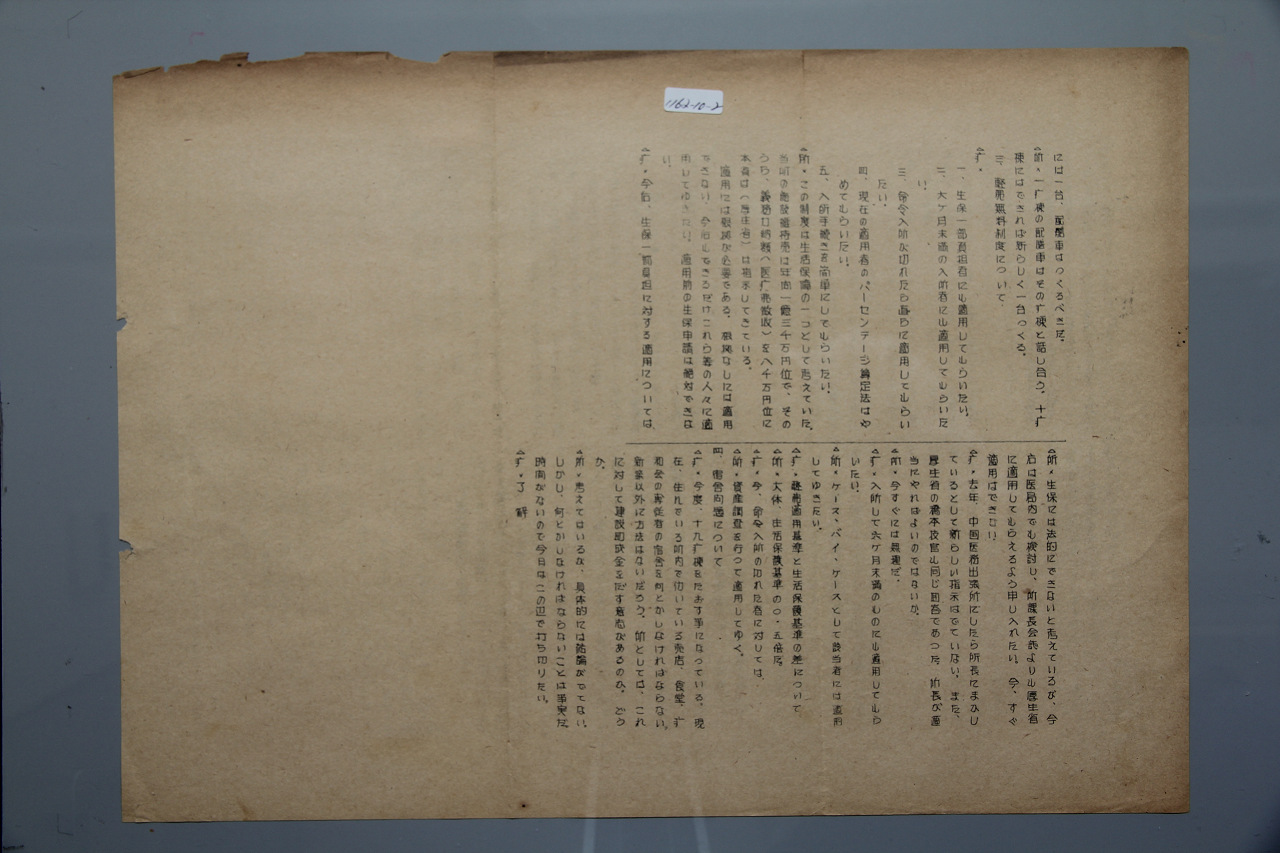 1162-10-2
には一台、配膳車はつくるべきだ。
△所・一疒棟の配膳車はその疒棟と話し合う。十疒
棟にはできれば新らしく一台つくる。
三、軽費無料制度について
△疒・
一、生保一部負担者にも適用してもらいたい。
二、六ケ月未満の入所者にも適用してもらいた
い。
三、命令入所が切れたら直ちに適用してもらい
たい。
四、現在の適用者のパーセンテージ算定法はや
めてもらいたい。
五、入所手続きを簡単にしてもらいたい。
△所・この制度は生活保護の一つとして考えていた。
当所の施設維持費は年間一億三千万円位で、その
うち、義務打切額（医疒費徴収）を八千万円位に
本省は（厚生省）は指示してきている。
適用には根拠が必要である。根拠なしには適用
できない。今后もできるだけこれら等の人々に適
用してゆきたい。適用前の生保申請は絶対できな
い。
△疒・今后、生保一部負担に対する適用については
△所・生保には法的にできないと考えているが、今
后は医局内でも検討し、所課長会議よりも厚生省
に適用してもらえるよう申し入れたい。今、すぐ
適用はできない
△疒・去年、中国医務出張所にしたら所長にまかし
ているとして新らしい指示はでていない。また、
厚生省の橋本技官も同じ回答であった。所長が適
当にやればよいのではないか。
△所・今すぐには無理だ。
△疒・入所して六ケ月未満のものにも適用してもら
いたい。
△所・ケース、バイ、ケースとして該当者には適用
してゆきたい。
△疒・軽費適用基準と生活保護基準の差について
△所・大体、生活保護基準の一・五倍だ。
△疒・今、命令入所の切れた者に対しては、
△所・資産調査を行って適用してゆく。
四、宿舎問題について
△疒・今度、十九疒棟をたおす事になっている。現
在、住んでいる所内で働いている売店、食堂、疒
和会の専従者の宿舎を何とかしなければならない。
新築以外に方法はないだろう。所としては、これ
に対して建設助成金をだす意志があるのか、どう
か。
△所・考えてはいるが、具体的には結論がでてない。
しかし、何とかしなければならないことは事実だ。
時間がないので今日はこの辺で打ち切りたい。
△疒・了　解